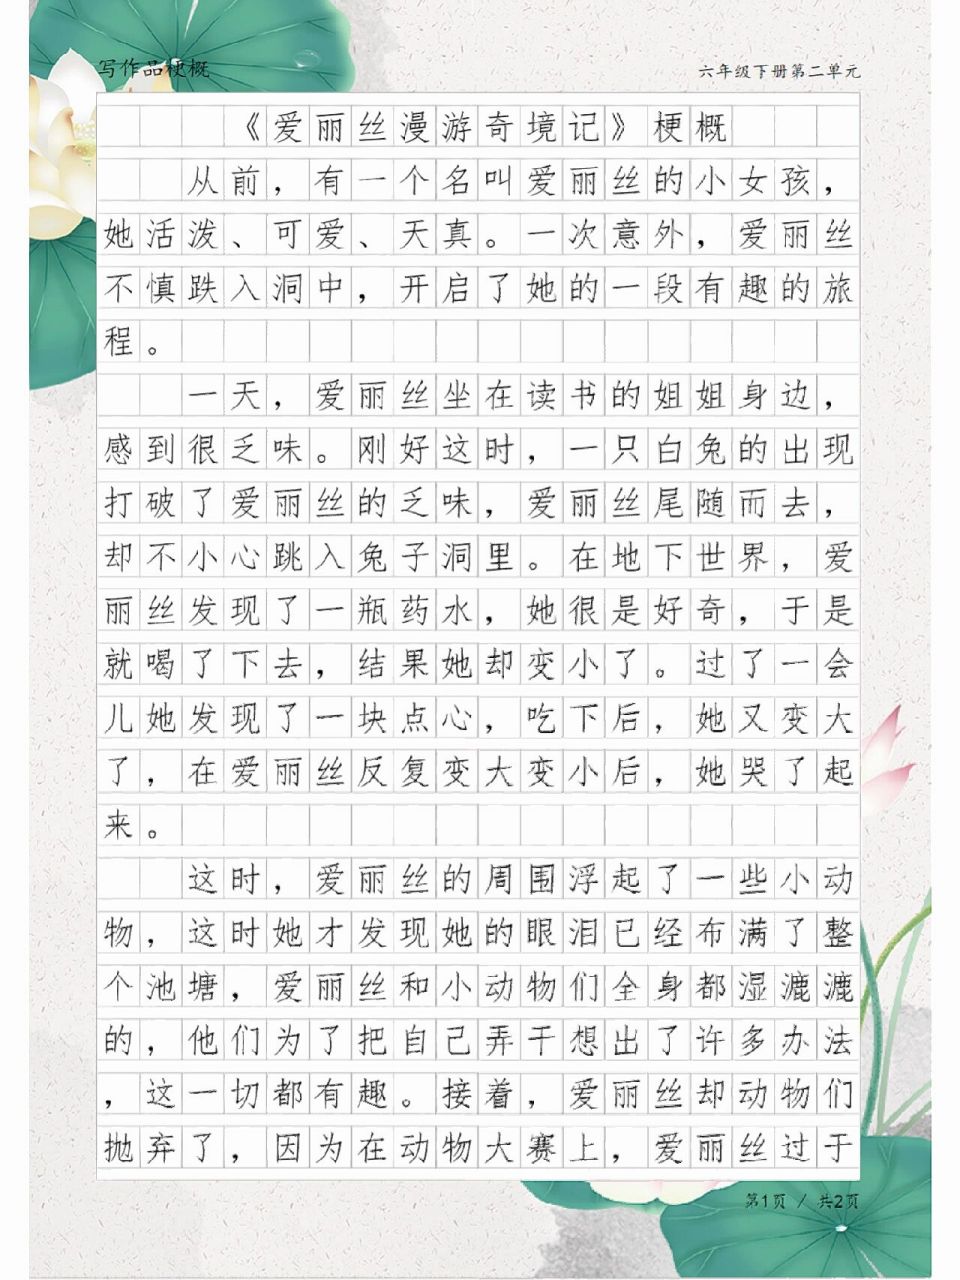 写作品梗概
六年级下册第二单元
《爱丽丝漫游奇境记》梗概
从前，有一个名叫爱丽丝的小女孩，
她活泼、可爱、天真。一次意外，爱丽丝
不慎跌入洞中，开启了她的一段有趣的旅
程。
一天，爱丽丝坐在读书的姐姐身边，
感到很乏味。刚好这时，一只白兔的出现
打破了爱丽丝的乏味，爱丽丝尾随而去，
却不小心跳入兔子洞里。在地下世界，爱
丽丝发现了一瓶药水，她很是好奇，于是
就喝了下去，结果她却变小了。过了一会
儿她发现了一块点心，吃下后，她又变大
了，在爱丽丝反复变大变小后，她哭了起
来。
这时，爱丽丝的周围浮起了一些小动
物，这时她才发现她的眼泪已经布满了整
个池塘，爱丽丝和小动物们全身都湿漉漉
的，他们为了把自己弄干想出了许多办法
，这一切都有趣。接着，爱丽丝却动物们
抛弃了，因为在动物大赛上，爱丽丝过于
第1页 / 共2页